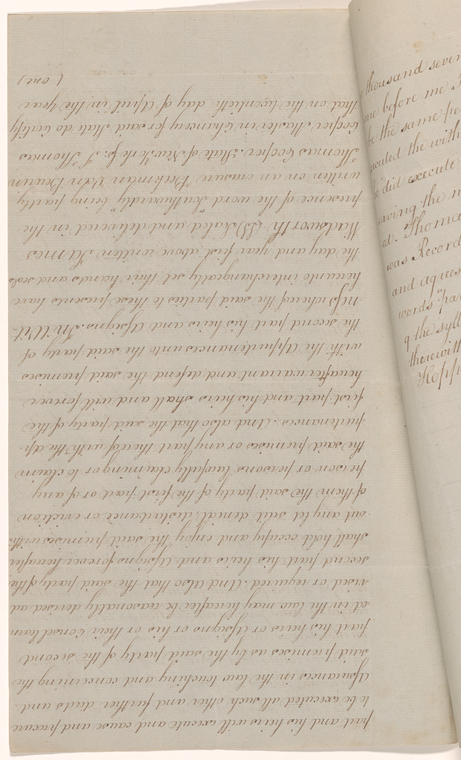 part and his heirs will execute and cause and procure
to be executed all such other and further deeds and
assurances in the law touching and concerning the
said premises as by the said party of the second
part his heirs or assigns or his or their Counsel learn
ed in the law may hereafter be reasonably devised ad
vised or required. And also that the said party of the
second part his heirs and assigns forever hereafter
shall hold occupy and enjoy the said premises with
out any let suit denial disturbance or eviction
of them the said party of the first part or of any
person or persons lawfully claiming or to claim
the said premises or any part thereof with the ap
purtenances. And also that the said party of the
first part and his heirs shall and will forever
hereafter warrant and defend the said premises
with the appurtenances unto the said party of
the second part his heirs and assigns. In Wit
ness whereof the said parties to these presents have
hereunto interchangeably set their hands and seals
the day and year first above written James
Wadsworth Sealed and delivered in the
presence of the word Southwardly being partly
written on an erasure
Thomas Cooper. State of New York ss. I Thomas
Cooper Master in Chancery for said State do certify
that on the twentieth day of April in the year
(one)
thousand seven
me before me
the same pe
the with
did execute
having the
Thoma
was Record
and agree
words
of the
therewith
Hopp